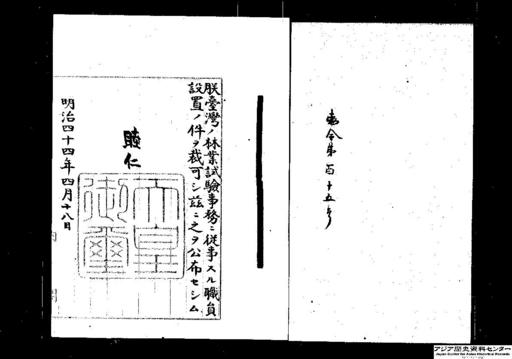 勅令第百十五号
朕臺灣ノ林業試驗事務ニ從事スル職員
設置ノ件ヲ裁可シ茲ニ之ヲ公布セシム
睦仁
天皇
御璽
明治四十四年四月十八日
内閣
アジア歴史資料センター
Japan Center for Asian Historical Records